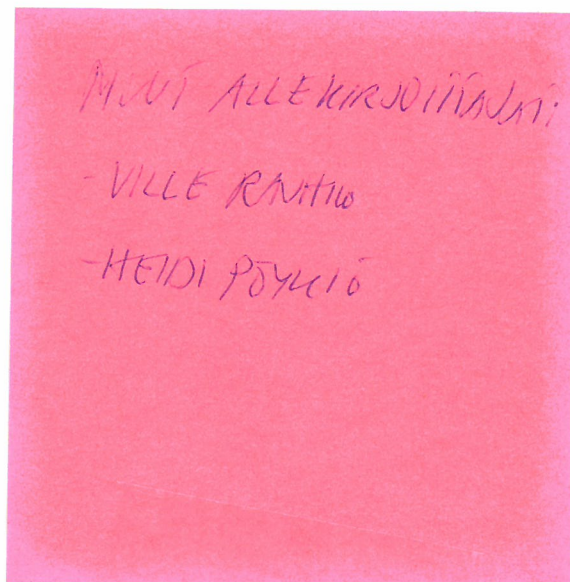 MUUT ALLEKIRJOITTAJAT:
-VILLE
-HEIDI PÖYKIÖ